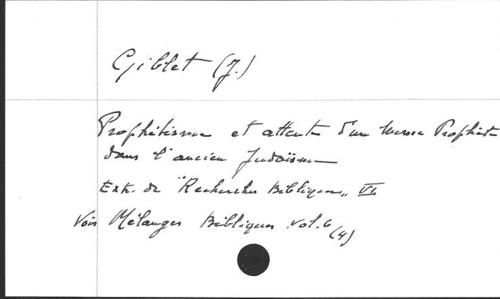 Giblet (J.)
Prophétisme et attente d'un Messie Prophète
dans l'ancien Judaïsme
Ext. de "Recherches Bibliques" VI
Voir Mélanges Bibliques vol. 6
(4)